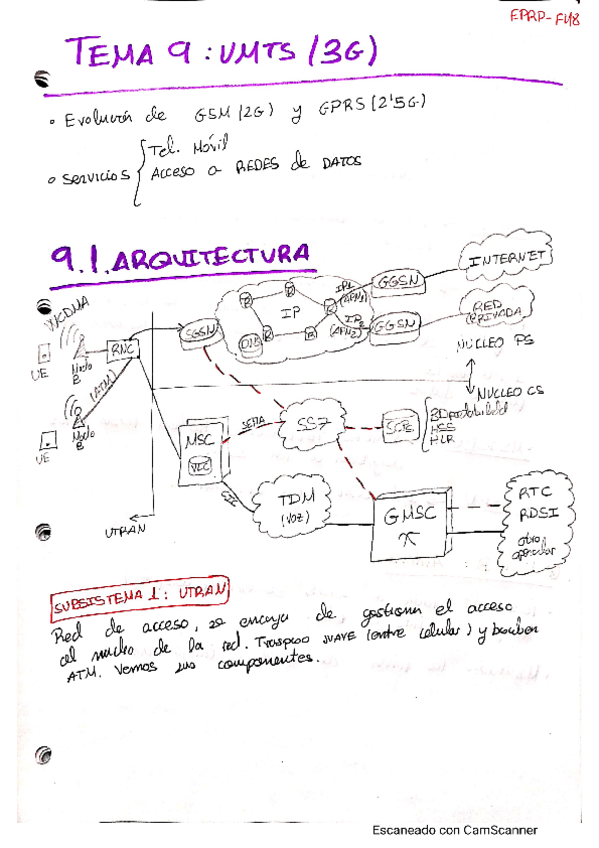 EPRP-F48
TEMA 9: UMTS (3G)
• Evolución de GSM (2G) y GPRS (2'5G)
• Servicios { Tel. Móvil
Acceso a REDES de DATOS
9.1. ARQUITECTURA
WCDMA
UE
Nodo B
RNC
(ATM)
UE
Nodo B
UTRAN
SGSN
R
R
R
R
R
IP
DNS
IP1
(APN1)
IP2
(APN2)
GGSN
GGSN
INTERNET
RED PRIVADA
NÚCLEO PS
NÚCLEO CS
MSC
VLR
SEÑA
SS7
BD portabilidad
HSS
HLR
TDM
(VOZ)
GMSC
RTC
RDSI
otro operador
SUBSISTEMA 1: UTRAN
Red de acceso, se encarga de gestionar el acceso
al núcleo de la red. Traspaso SUAVE (entre celular) y también
ATM. Vemos sus componentes.
Escaneado con CamScanner